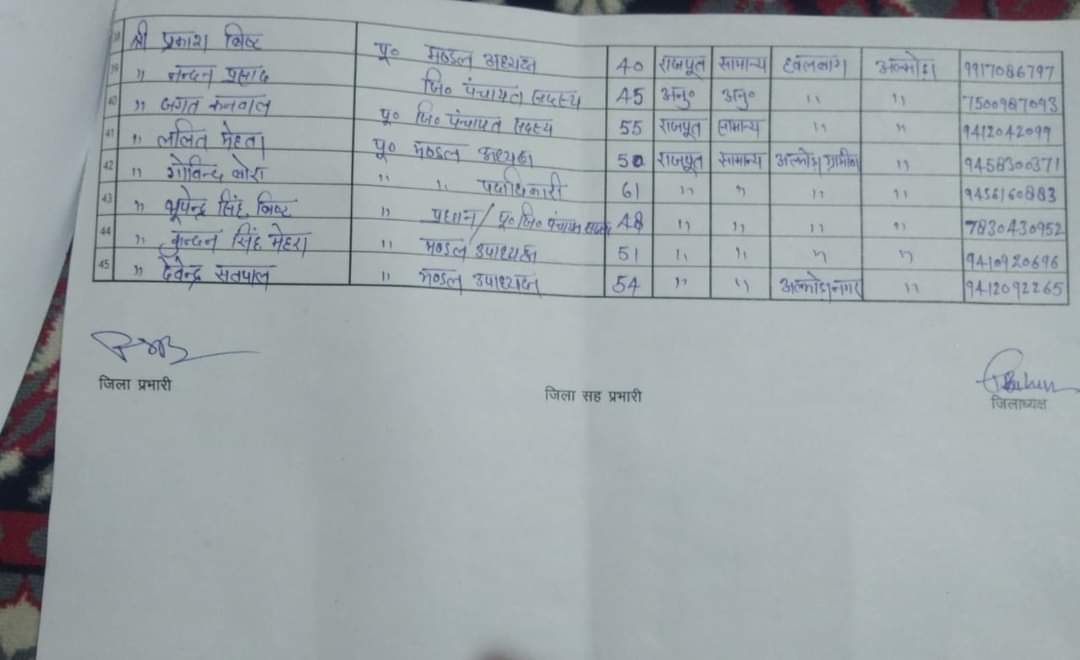 38 श्री प्रकाश बिष्ट पू० मण्डल अध्यक्ष 40 राजपूत सामान्य हवलबाग अल्मोडा 9917086797
39 " नन्दन प्रसाद जि० पंचायत सदस्य 45 अनु० अनु० " " 7500987093
40 " जगत कनवाल पू० जि० पंचायत सदस्य 55 राजपूत सामान्य " " 9412042099
41 " ललित मेहता पू० मण्डल अध्यक्ष 50 राजपूत सामान्य अल्मोडा ग्रामीण " 9458300371
42 " गोविन्द बोरा " " पदाधिकारी 61 " " " " 9456160883
43 " भूपेन्द्र सिंह बिष्ट " प्रधान/पू०जि० पंचायत सदस्य 48 " " " " 7830430952
44 " कुन्दन सिंह मेहरा " मण्डल उपाध्यक्ष 51 " " " " 9410920696
45 " देवेन्द्र सतपाल " मण्डल उपाध्यक्ष 54 " " अल्मोडा नगर " 9412092265
जिला प्रभारी
जिला सह प्रभारी
जिलाध्यक्ष